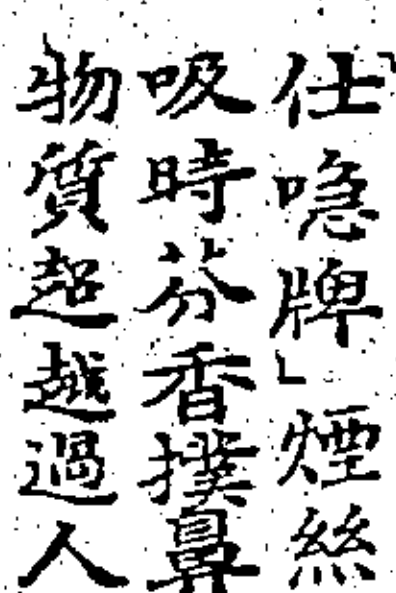 「仕喼牌」煙絲
吸時芬香撲鼻
物質超越過人